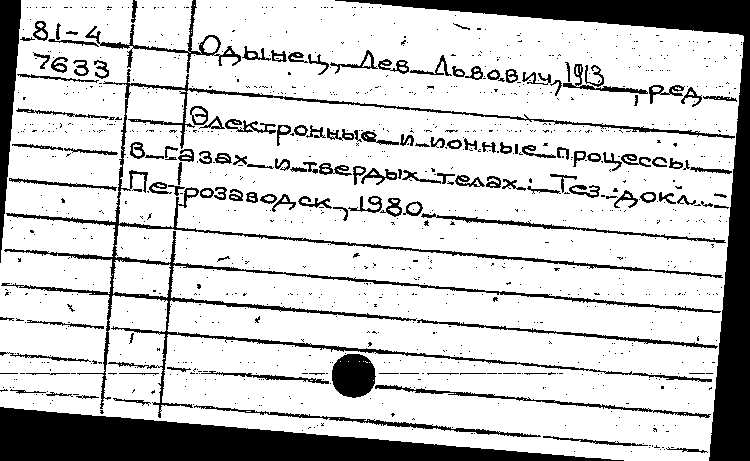 81-4
7633
Одынец, Лев Львович, 1913 , ред
Электронные и ионные процессы
в газах и твердых телах: Тез. докл... -
Петрозаводск, 1980